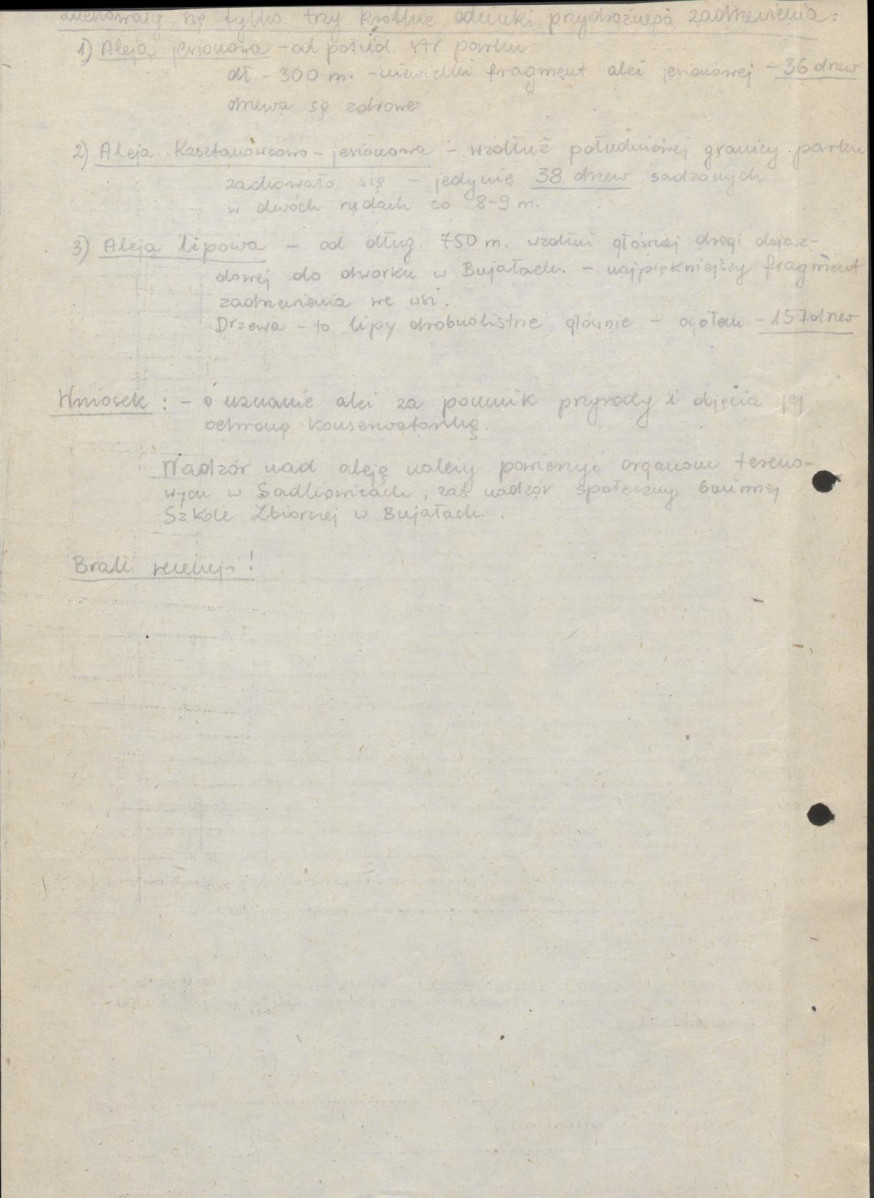 zachowały się tylko trzy krótkie odcinki przydrożnego zadrzewienia:
1) Aleja jesionowa - od połud. str. parku
dł - 300 m. - niewielki fragment alei jesionowej - 36 drzew
drzewa są zdrowe
2) Aleja Kasztanowcowo - jesionowa - wzdłuż południowej granicy parku
zachowało się - jedynie 38 drzew sadzonych
w dwóch rzędach co 8-9 m.
3) Aleja lipowa - od dług. 750 m. wzdłuż głównej drogi dojaz-
dowej do dworku w Bujałach. - najpiękniejszy fragment
zadrzewienia we wsi.
Drzewa - to lipy drobnolistne głównie - ogółem - 157 drzew
Wniosek : - o uznanie alei za pomnik przyrody i objęcia jej
ochroną konserwatorską.
Nadzór nad aleją należy powierzyć organom tereno-
wym w Sadkowicach, zaś nadzór społeczny Gminnej
Szkole Zbiorczej w Bujałach.
Brak !